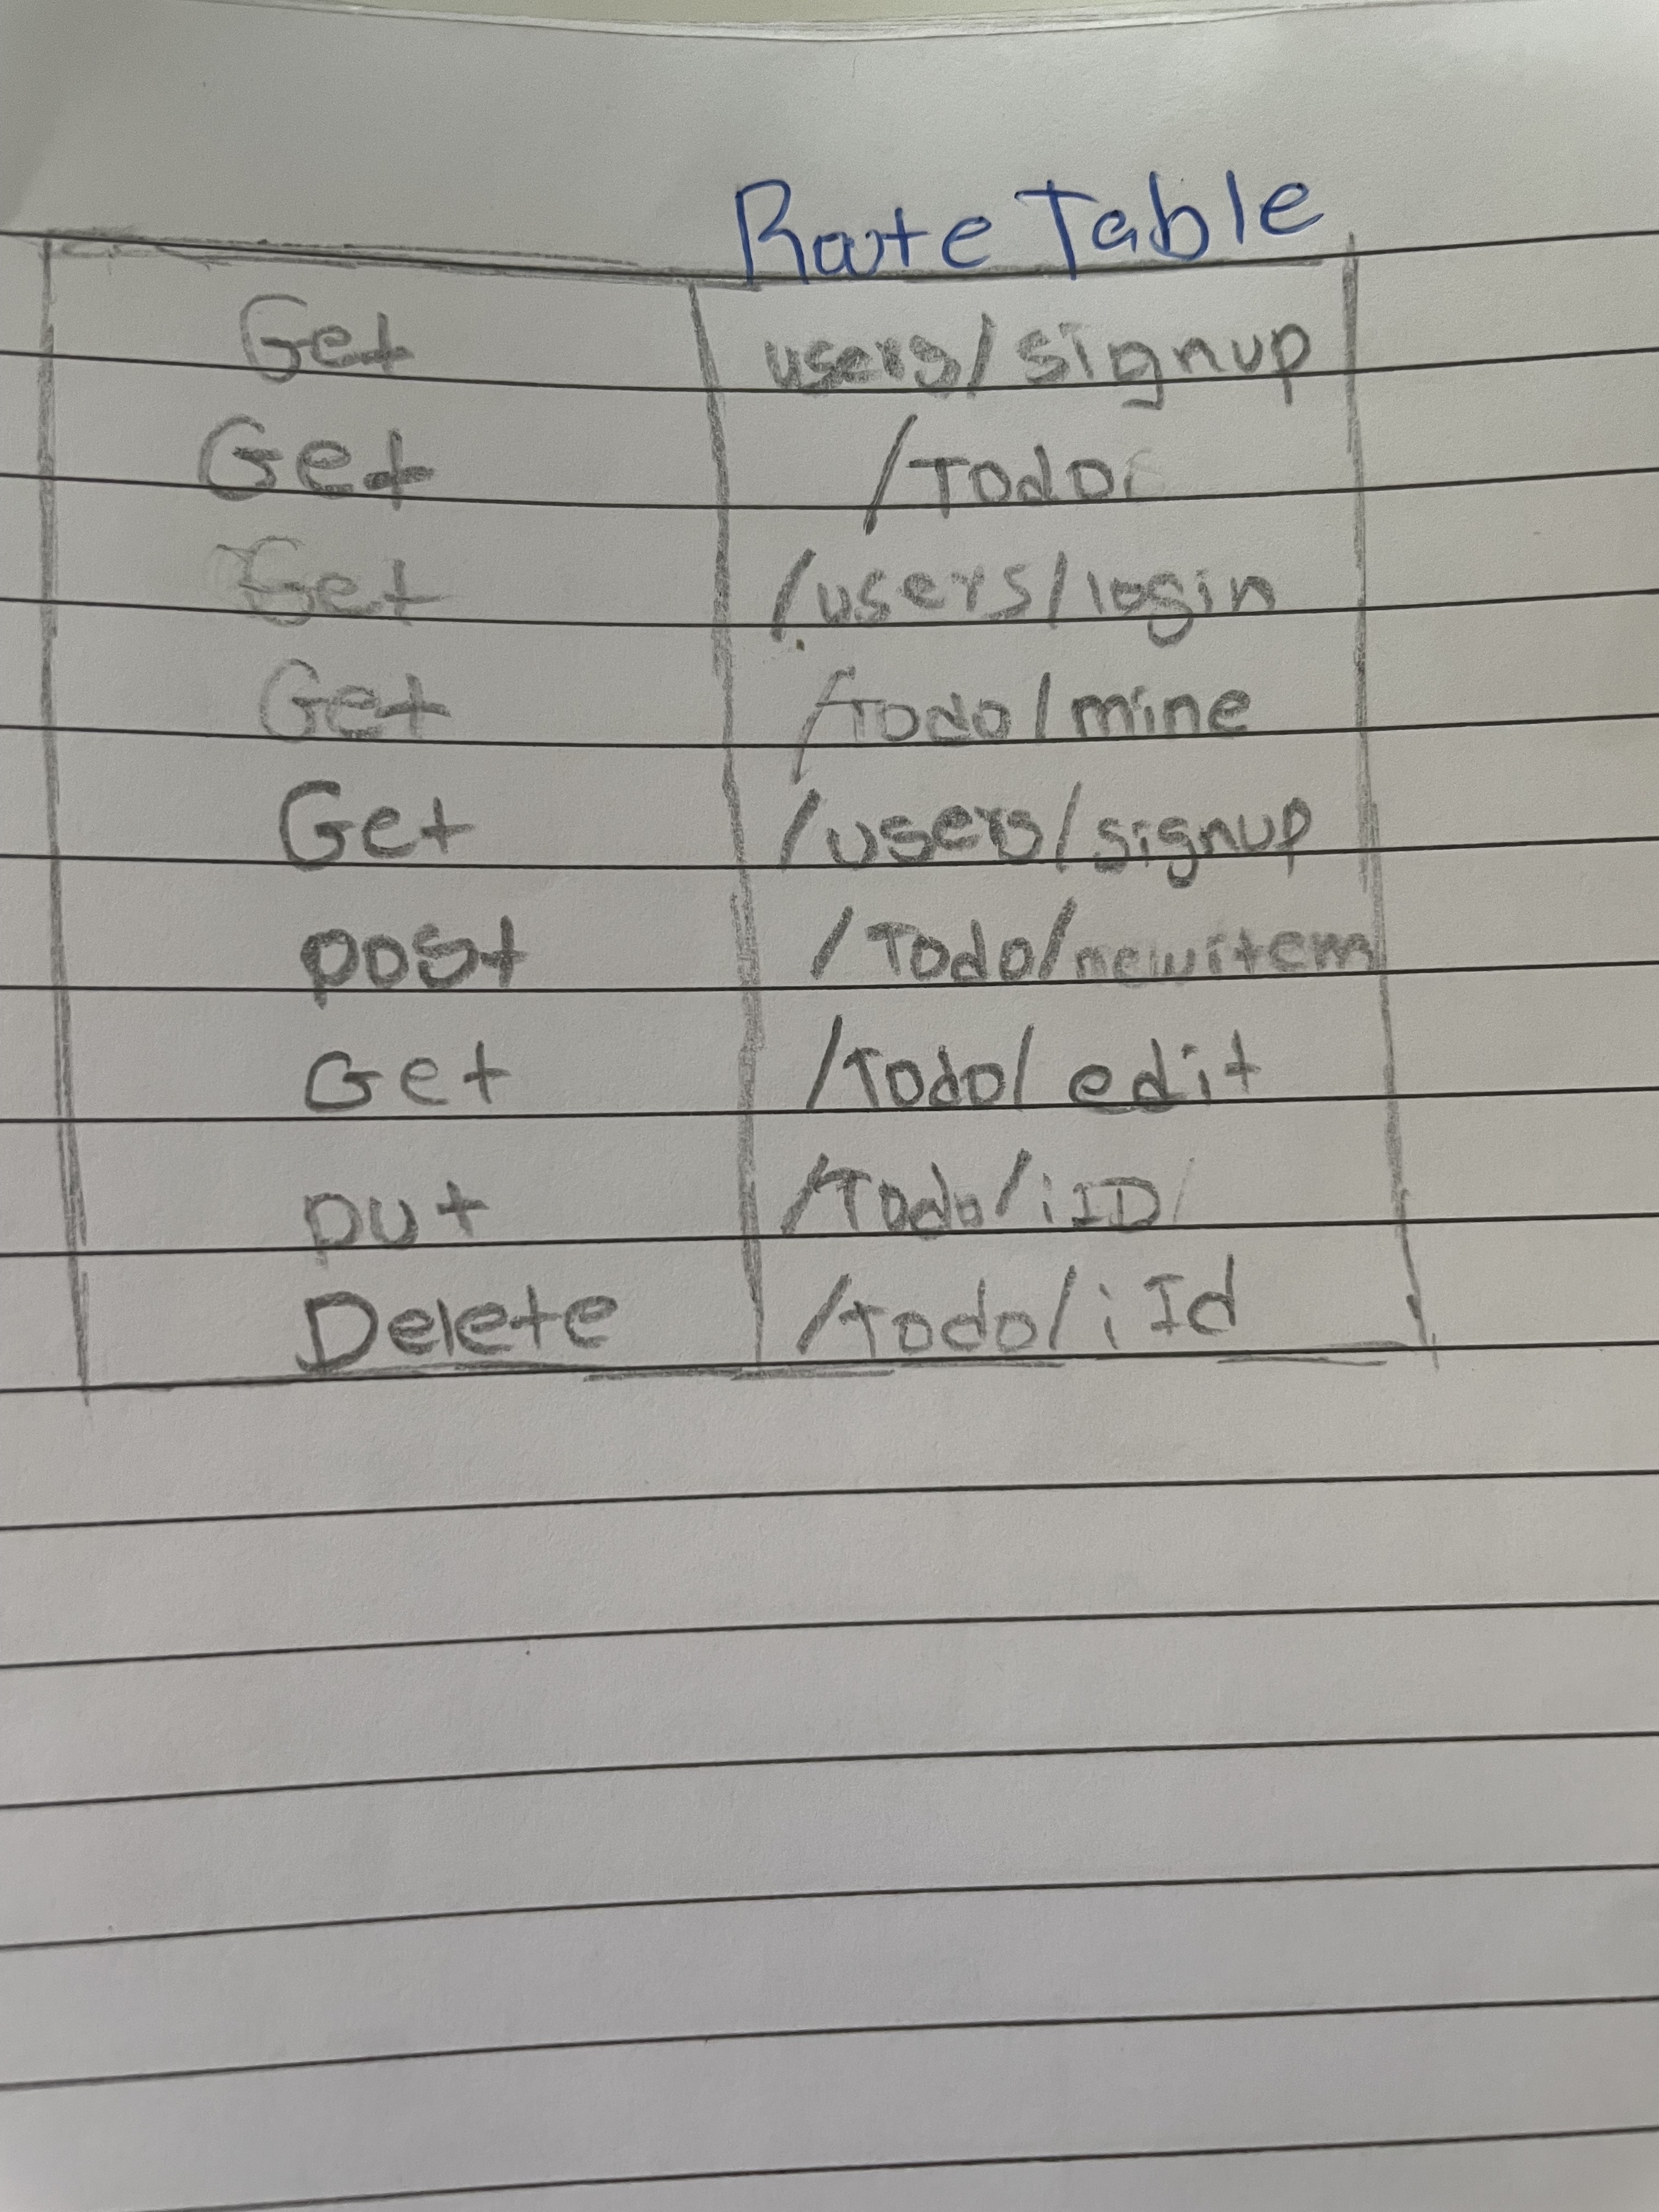 Route Table
Get users/signup
Get /Todo
Get /users/login
Get /Todo/mine
Get /users/signup
post /Todo/newitem
Get /Todo/edit
put /Todo/iID
Delete /Todo/iId